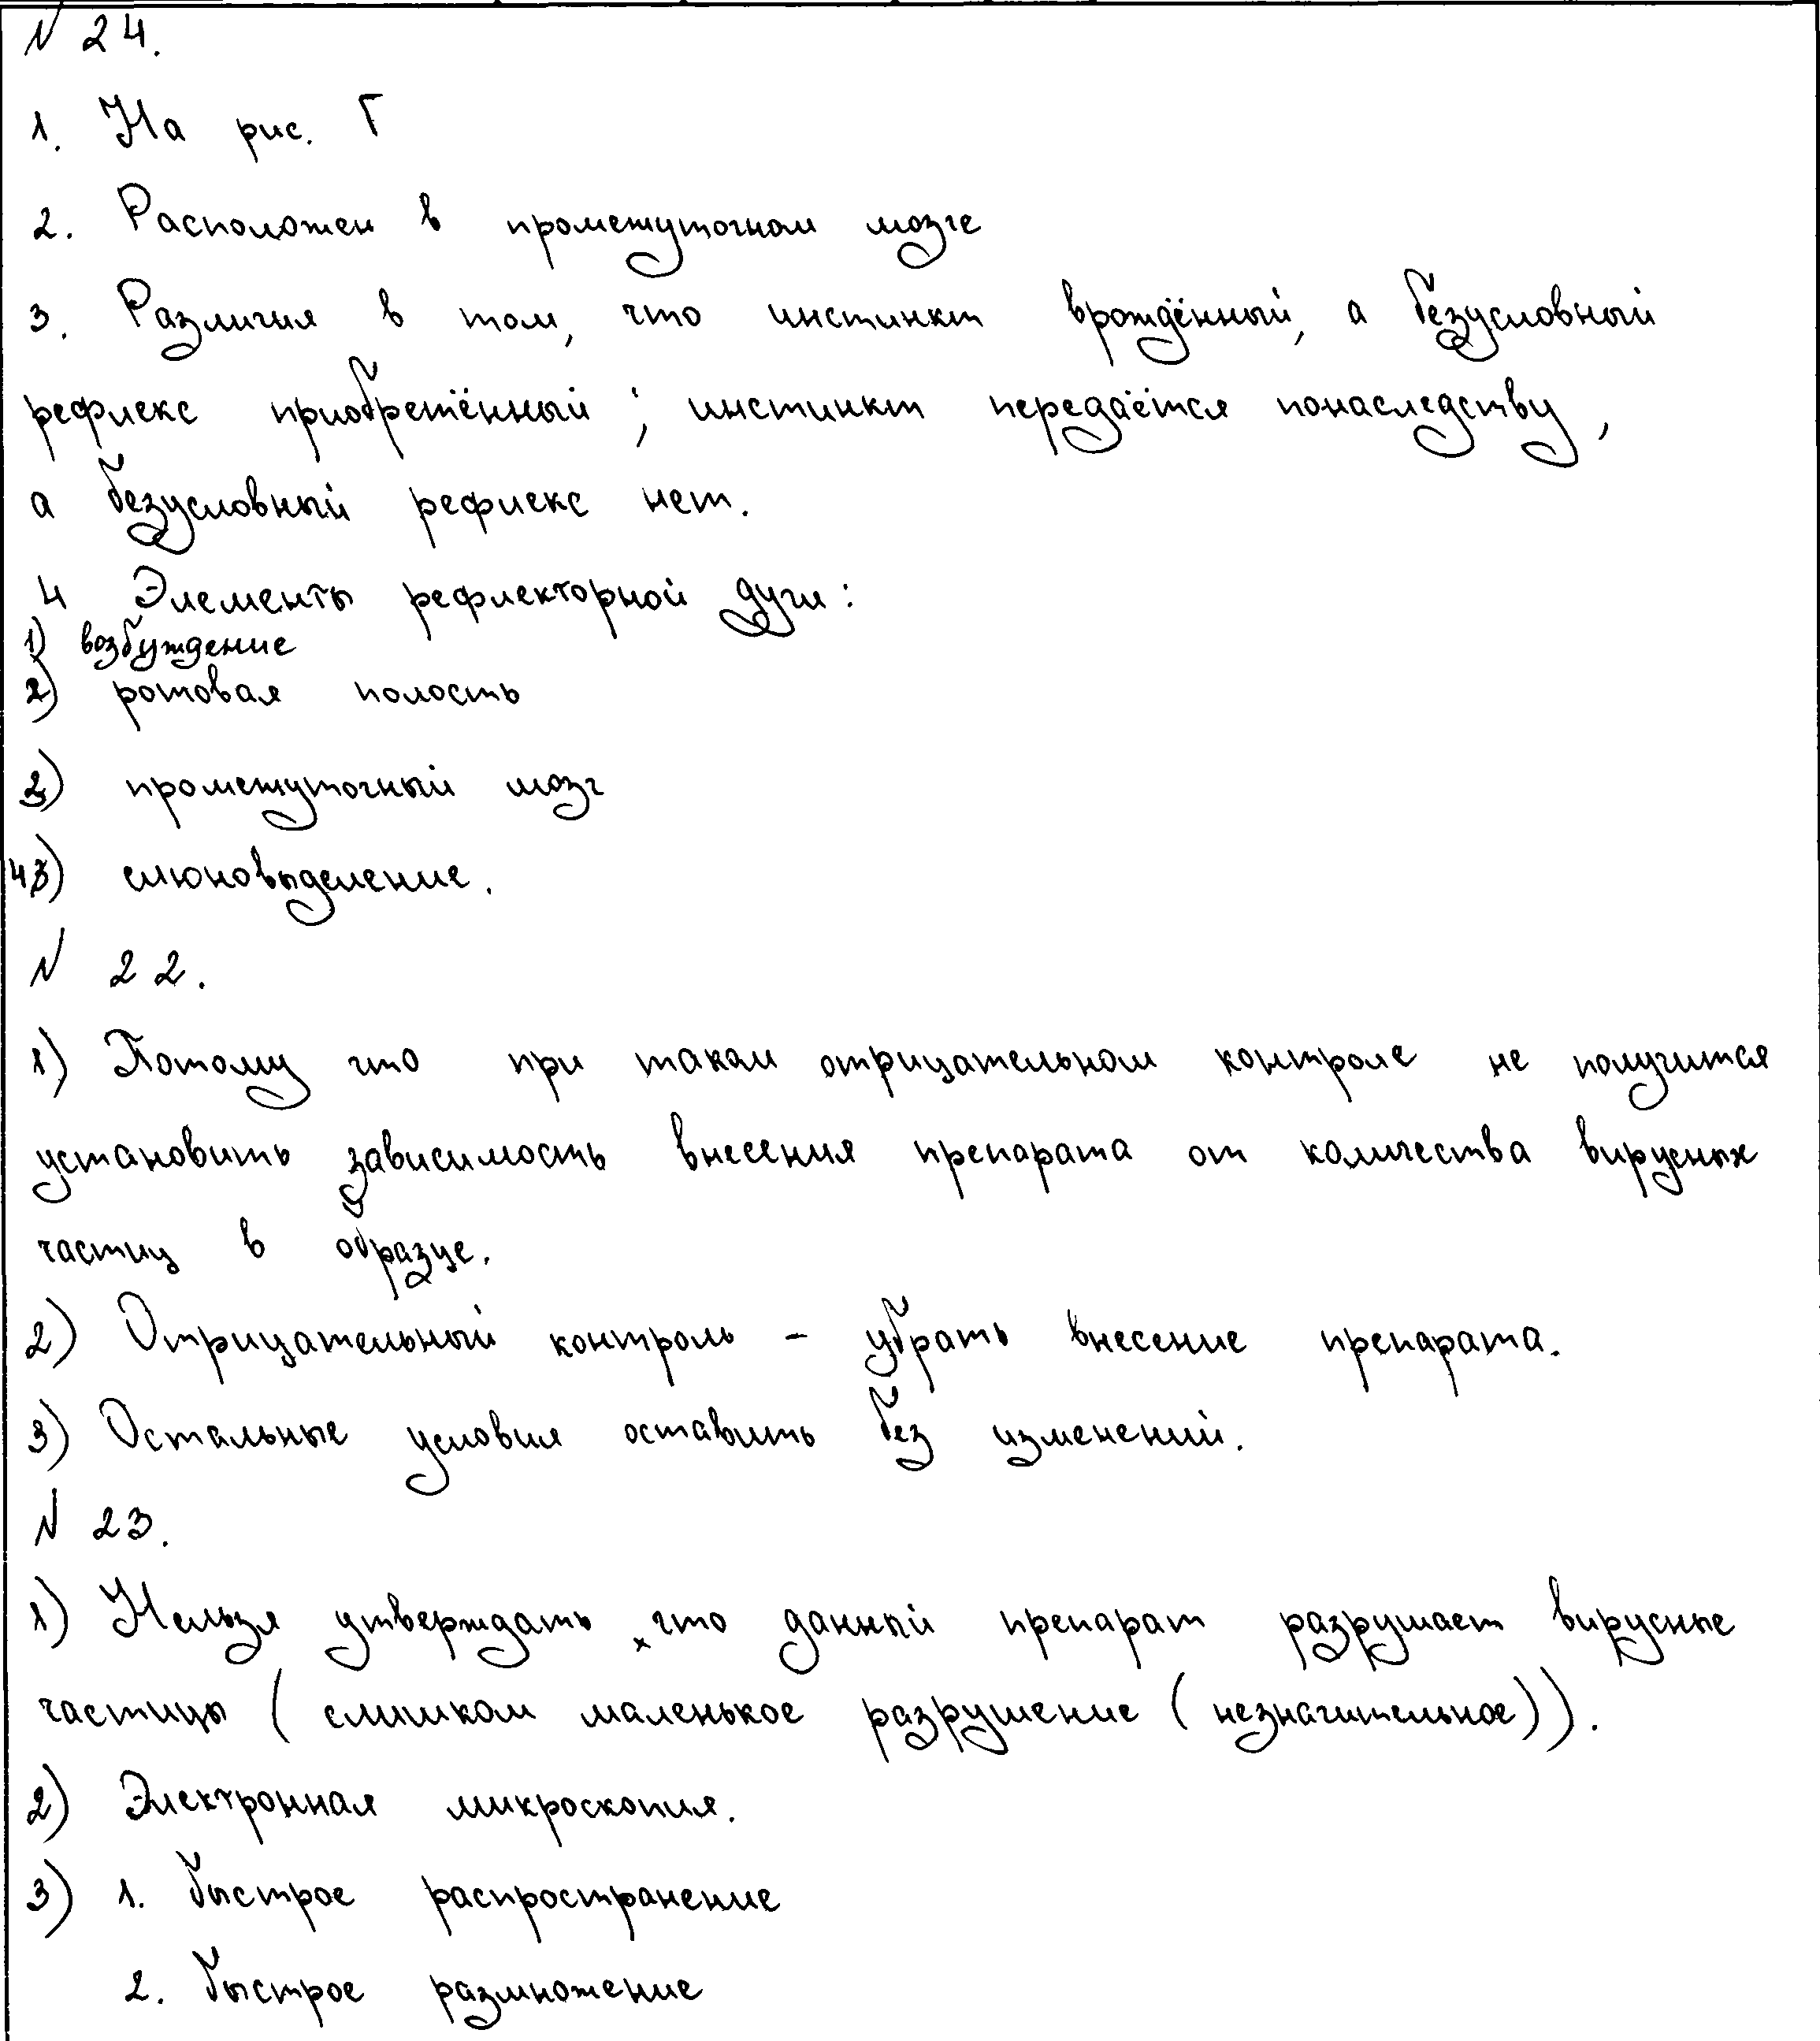 N 24.
1. На рис. Г
2. Расположен в промежуточном мозге
3. Различия в том, что инстинкт врождённый, а безусловный
рефлекс приобретённый; инстинкт передаётся понаследству,
а безусловный рефлекс нет.
4 Элементы рефлекторной дуги:
1) возбуждение
2) ротовая полость
3) промежуточный мозг
4) слюновыделение.
N 22.
1) Потому что при таком отрицательном контроле не получится
установить зависимость внесения препарата от количества вирусных
частиц в образце.
2) Отрицательный контроль - убрать внесение препарата.
3) Остальные условия оставить без изменений.
N 23.
1) Нельзя утверждать, что данный препарат разрушает вирусные
частицы (слишком маленькое разрушение (незначительное)).
2) Электронная микроскопия.
3) 1. быстрое распространение
2. быстрое размножение